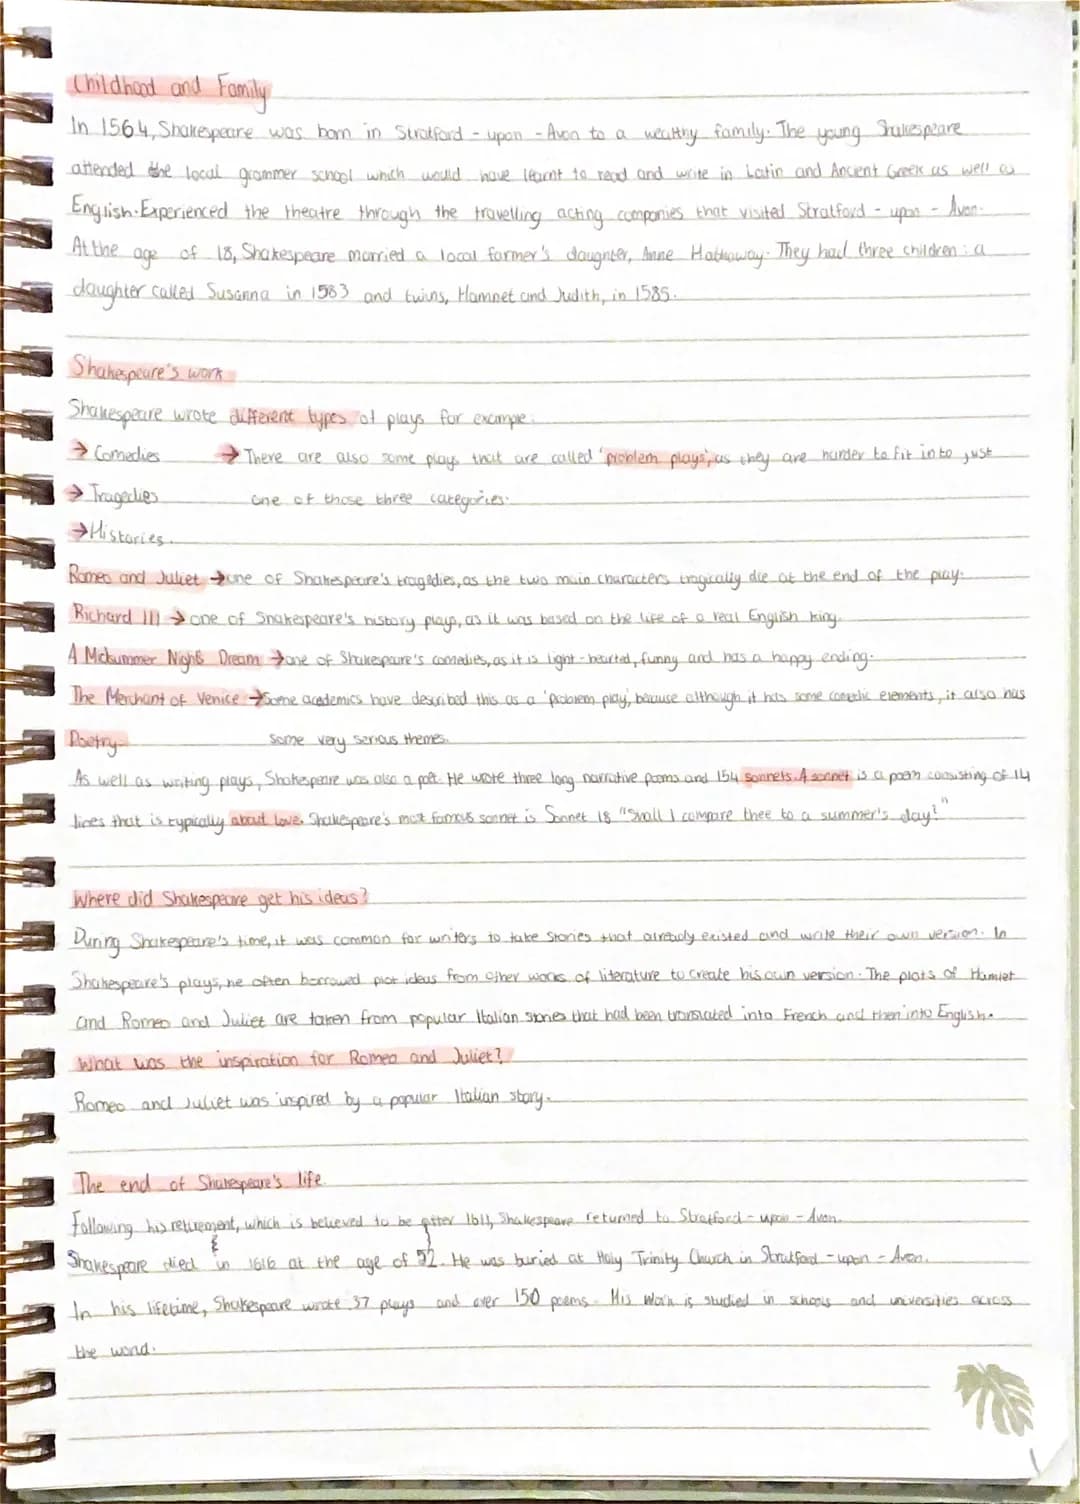 Childhood and Family
In 1564, Shakespeare was born in Stratford - upon - Avon to a wealthy family. The young Shakespeare
attended the local grammer school which would have learnt to read and write in Latin and Ancient Greek as well as
English. Experienced the theatre through the travelling acting companies that visited Stratford - upon - Avon.
At the age of 18, Shakespeare married a local farmer's daughter, Anne Hathaway. They had three children: a
daughter called Susanna in 1583 and twins, Hamnet and Judith, in 1585.
Shakespeare's work
Shakespeare wrote different types of plays for example:
→ Comedies → There are also some plays that are called 'problem plays', as they are harder to fit into just
→ Tragedies one of those three categories.
→ Histories.
Romeo and Juliet → one of Shakespeare's tragedies, as the two main characters tragically die at the end of the play.
Richard III → one of Shakespeare's history plays, as it was based on the life of a real English king.
A Midsummer Night's Dream → one of Shakespeare's comedies, as it is light-hearted, funny and has a happy ending.
The Merchant of Venice → Some academics have described this as a 'problem play', because although it has some comedic elements, it also has
Poetry some very serious themes.
As well as writing plays, Shakespeare was also a poet. He wrote three long narrative poems and 154 sonnets. A sonnet is a poem consisting of 14
lines that is typically about love. Shakespeare's most famous sonnet is Sonnet 18 "Shall I compare thee to a summer's day?"
Where did Shakespeare get his ideas?
During Shakespeare's time, it was common for writers to take stories that already existed and write their own version. In
Shakespeare's plays, he often borrowed plot ideas from other works of literature to create his own version. The plots of Hamlet
and Romeo and Juliet are taken from popular Italian stories that had been translated into French and then into English.
What was the inspiration for Romeo and Juliet?
Romeo and Juliet was inspired by a popular Italian story.
The end of Shakespeare's life
Following his retirement, which is believed to be after 1611, Shakespeare returned to Stratford - upon - Avon.
Shakespeare died in 1616 at the age of 52. He was buried at Holy Trinity Church in Stratford - upon - Avon.
In his lifetime, Shakespeare wrote 37 plays and over 150 poems. His work is studied in schools and universities across
the world.